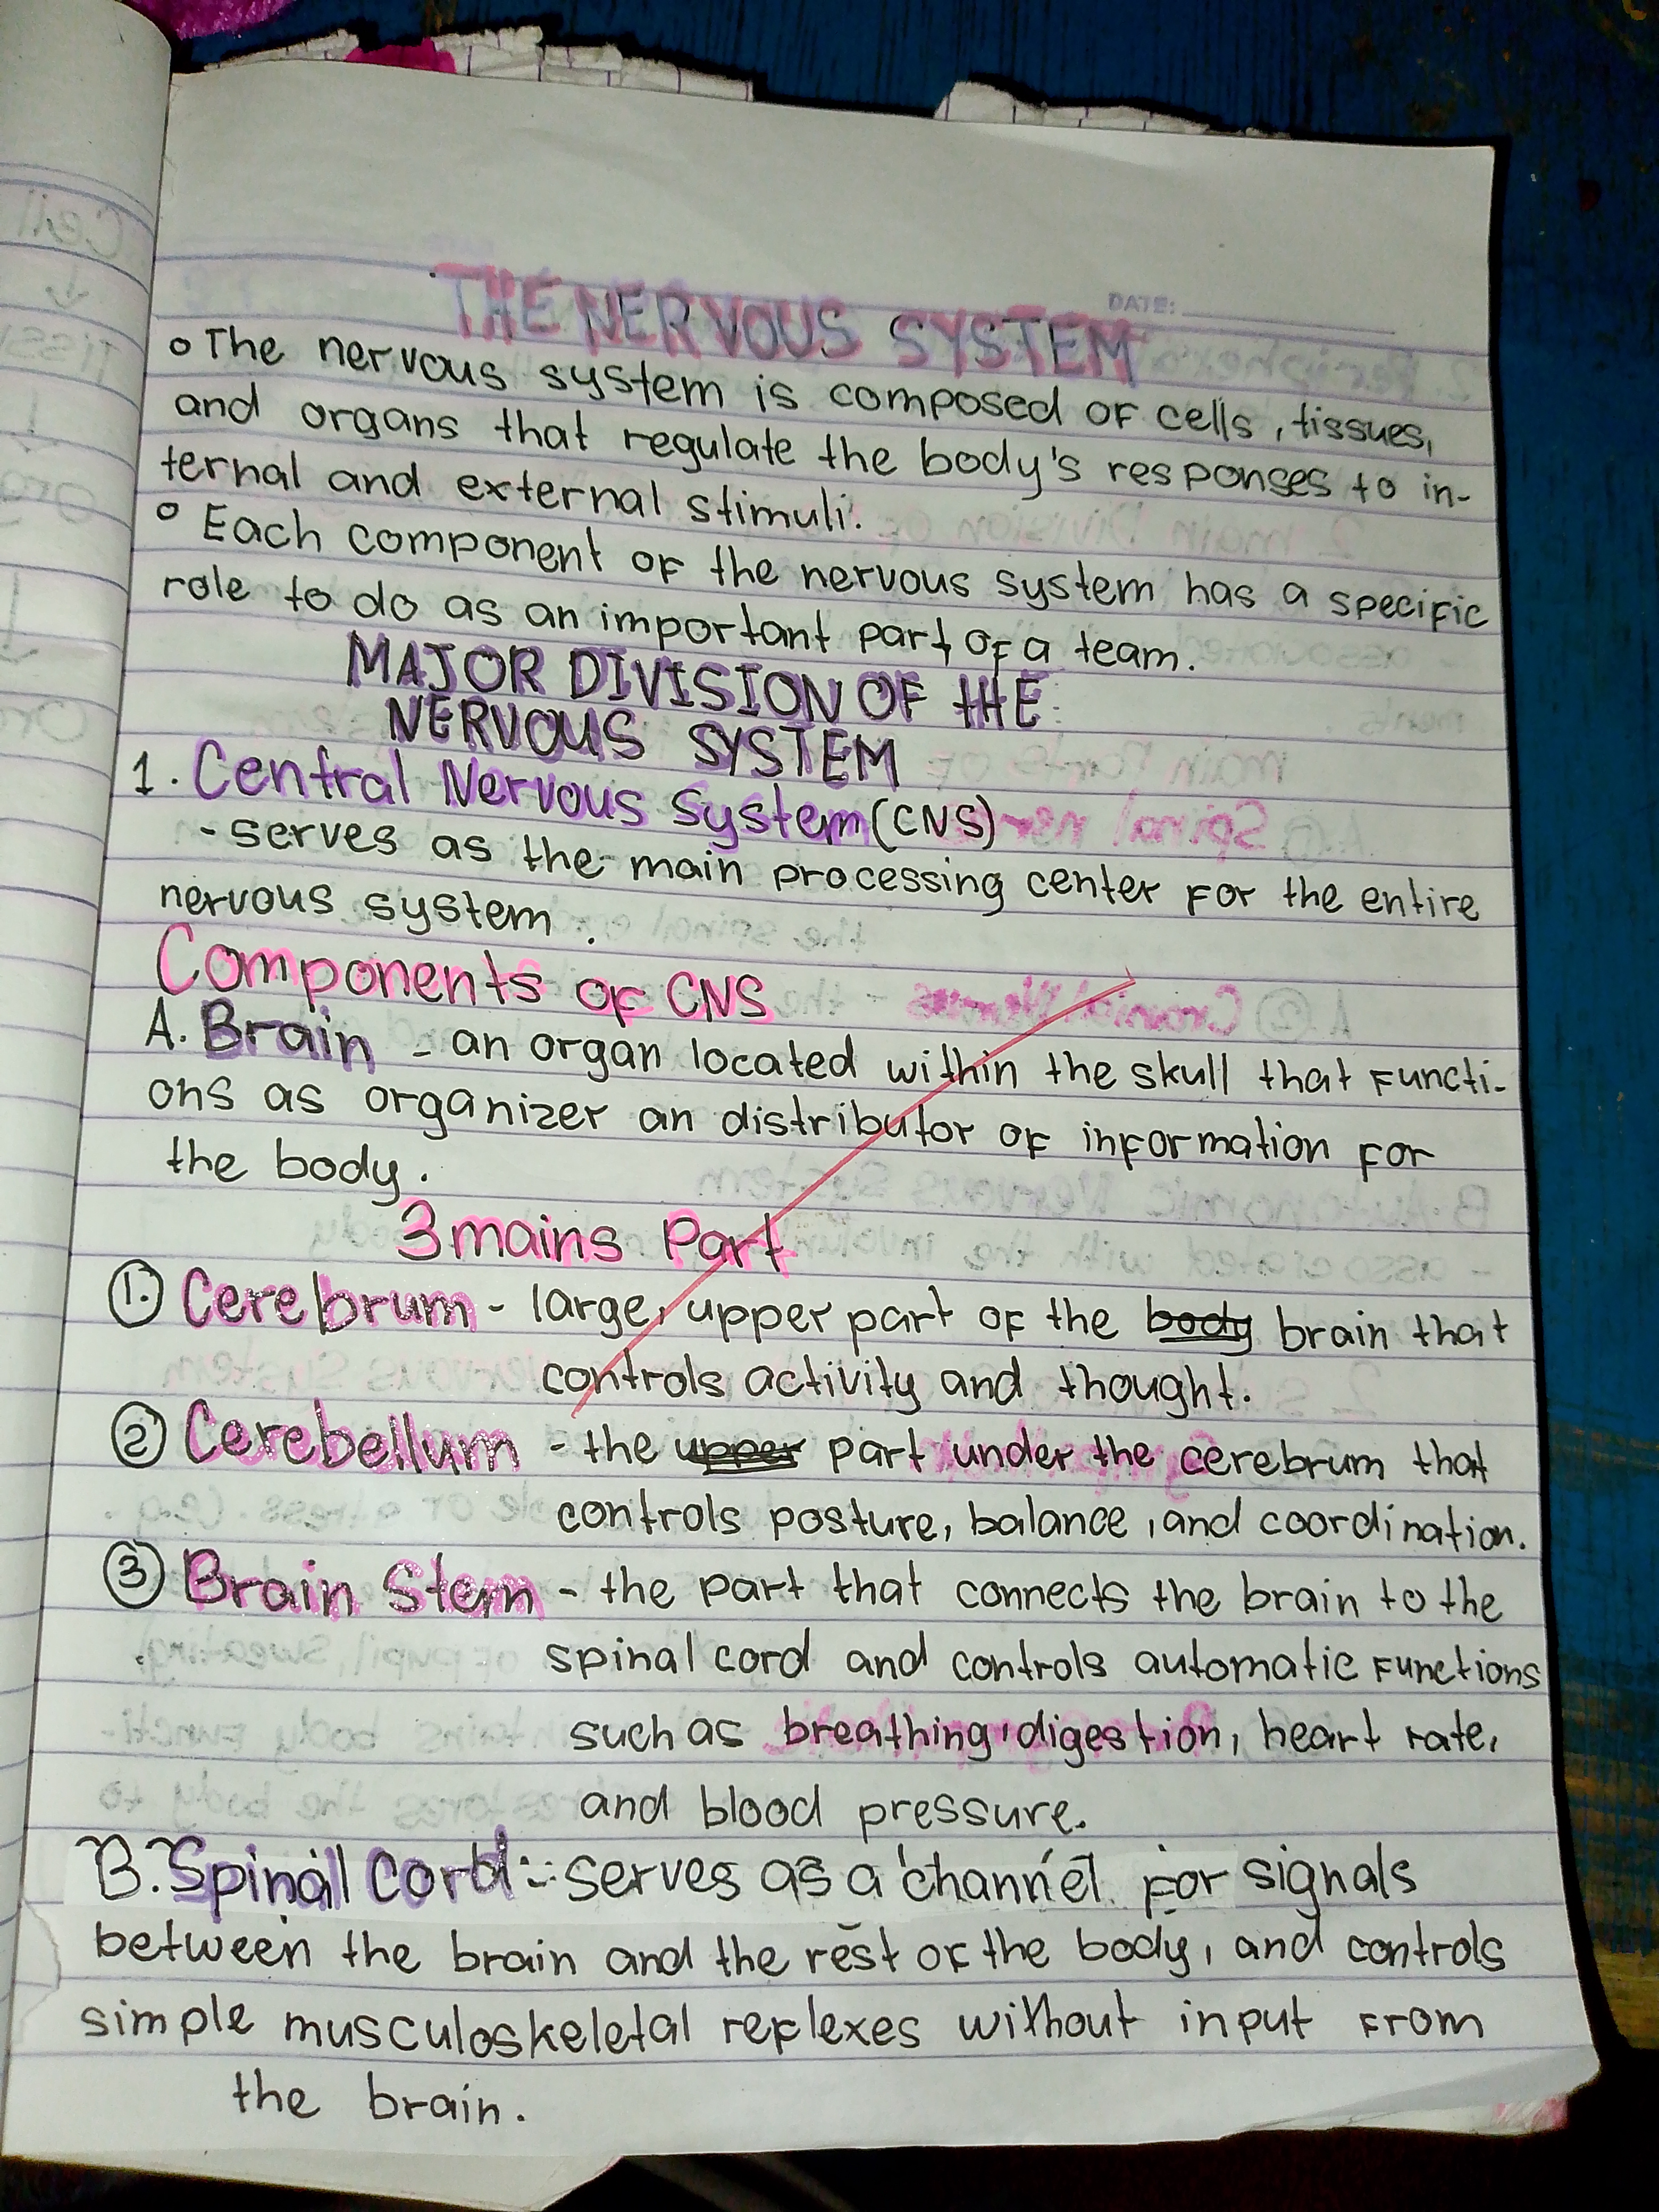 DATE:
THE NERVOUS SYSTEM
The nervous system is composed of cells, tissues,
and organs that regulate the body's responses to in-
ternal and external stimuli.
Each component of the nervous system has a specific
role to do as an important part of a team.
MAJOR DIVISION OF tHE
NERVOUS SYSTEM
1. Central Nervous System (CNS)
- serves as the main processing center for the entire
nervous system.
Components of CNS
A. Brain - an organ located within the skull that functi-
ons as organizer an distributor of information for
the body.
3 mains Part
1. Cerebrum - large, upper part of the body brain that
controls activity and thought.
2 Cerebellum - the upper part under the cerebrum that
controls posture, balance, and coordination.
3 Brain Stem - the part that connects the brain to the
spinal cord and controls automatic functions
such as breathing, digestion, heart rate,
and blood pressure.
B. Spinal Cord - serves as a channel for signals
between the brain and the rest of the body, and controls
simple musculoskeletal reflexes without input from
the brain.